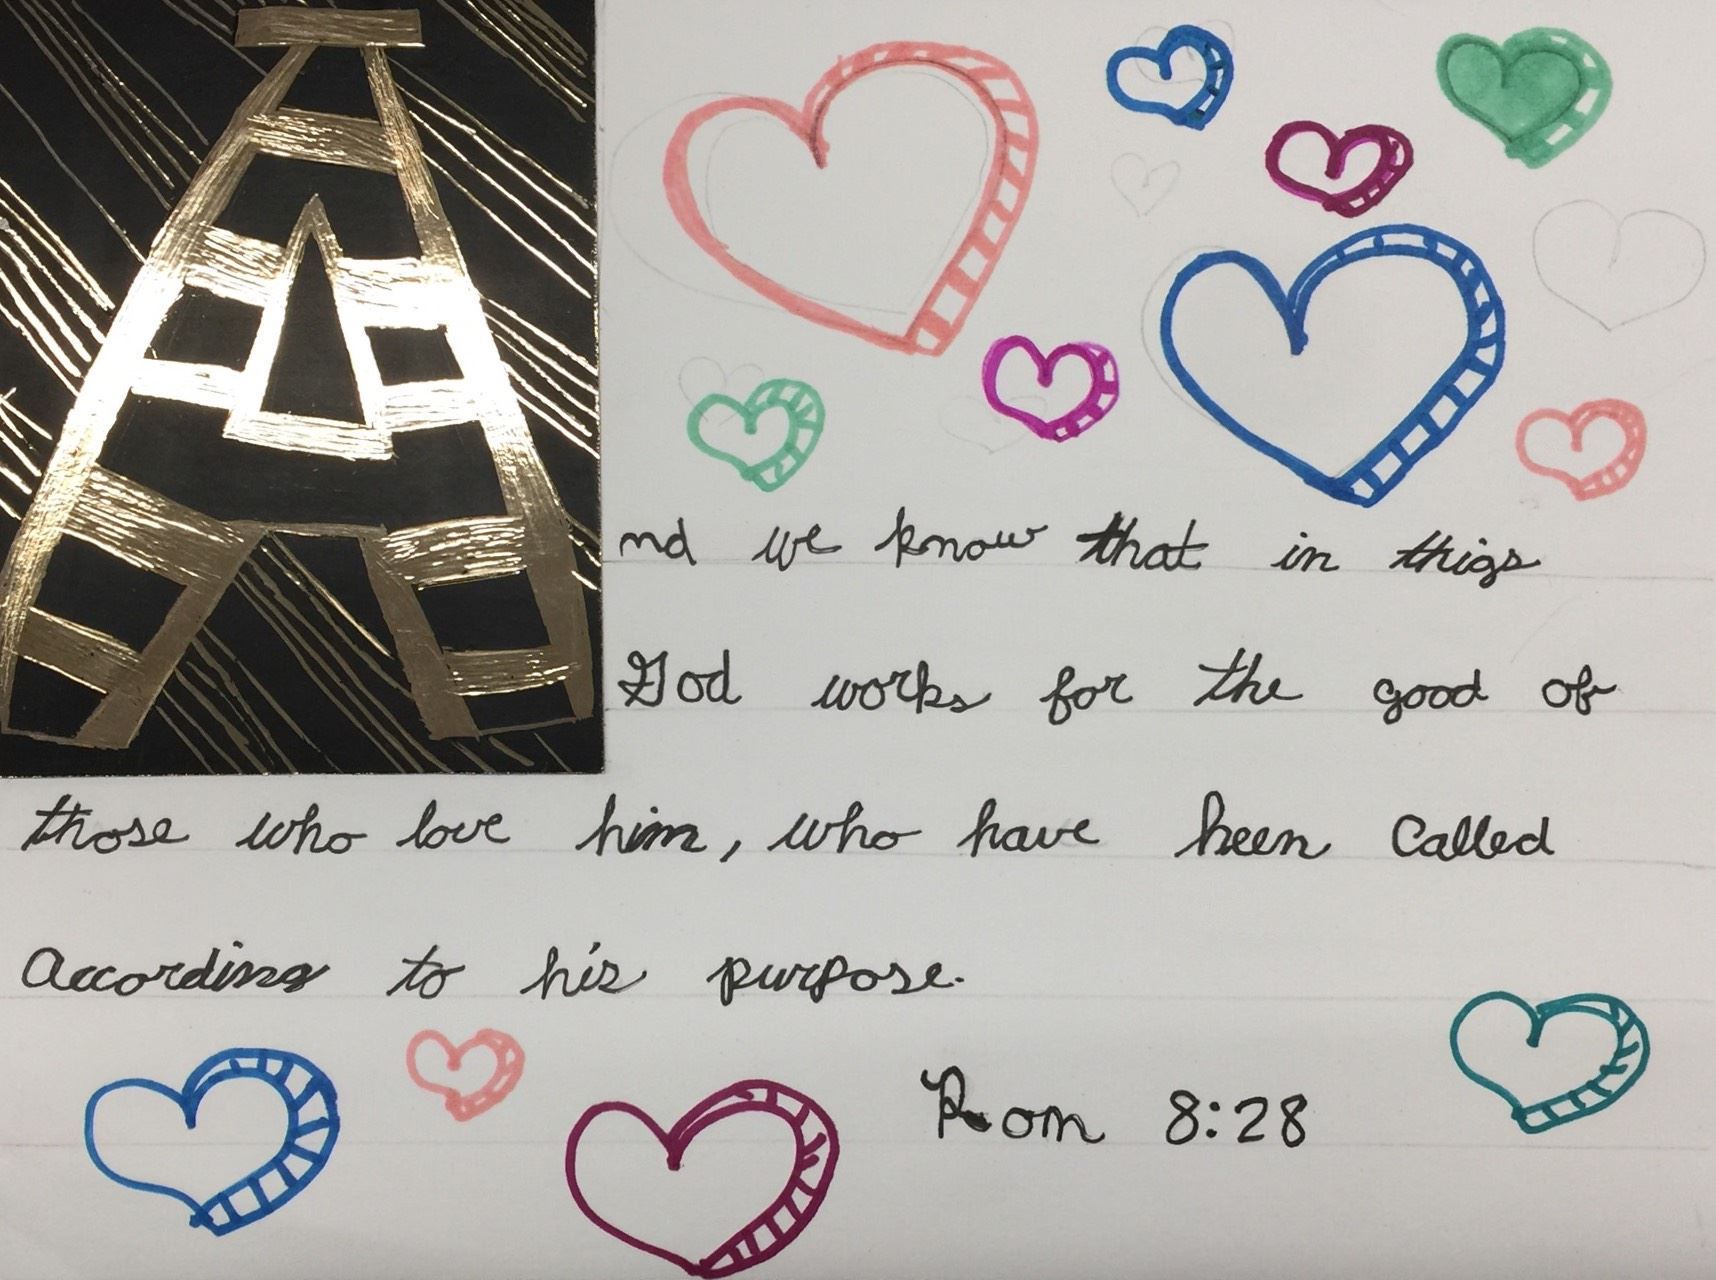 And we know that in thigs
God works for the good of
those who love him, who have been called
according to his purpose.
Rom 8:28